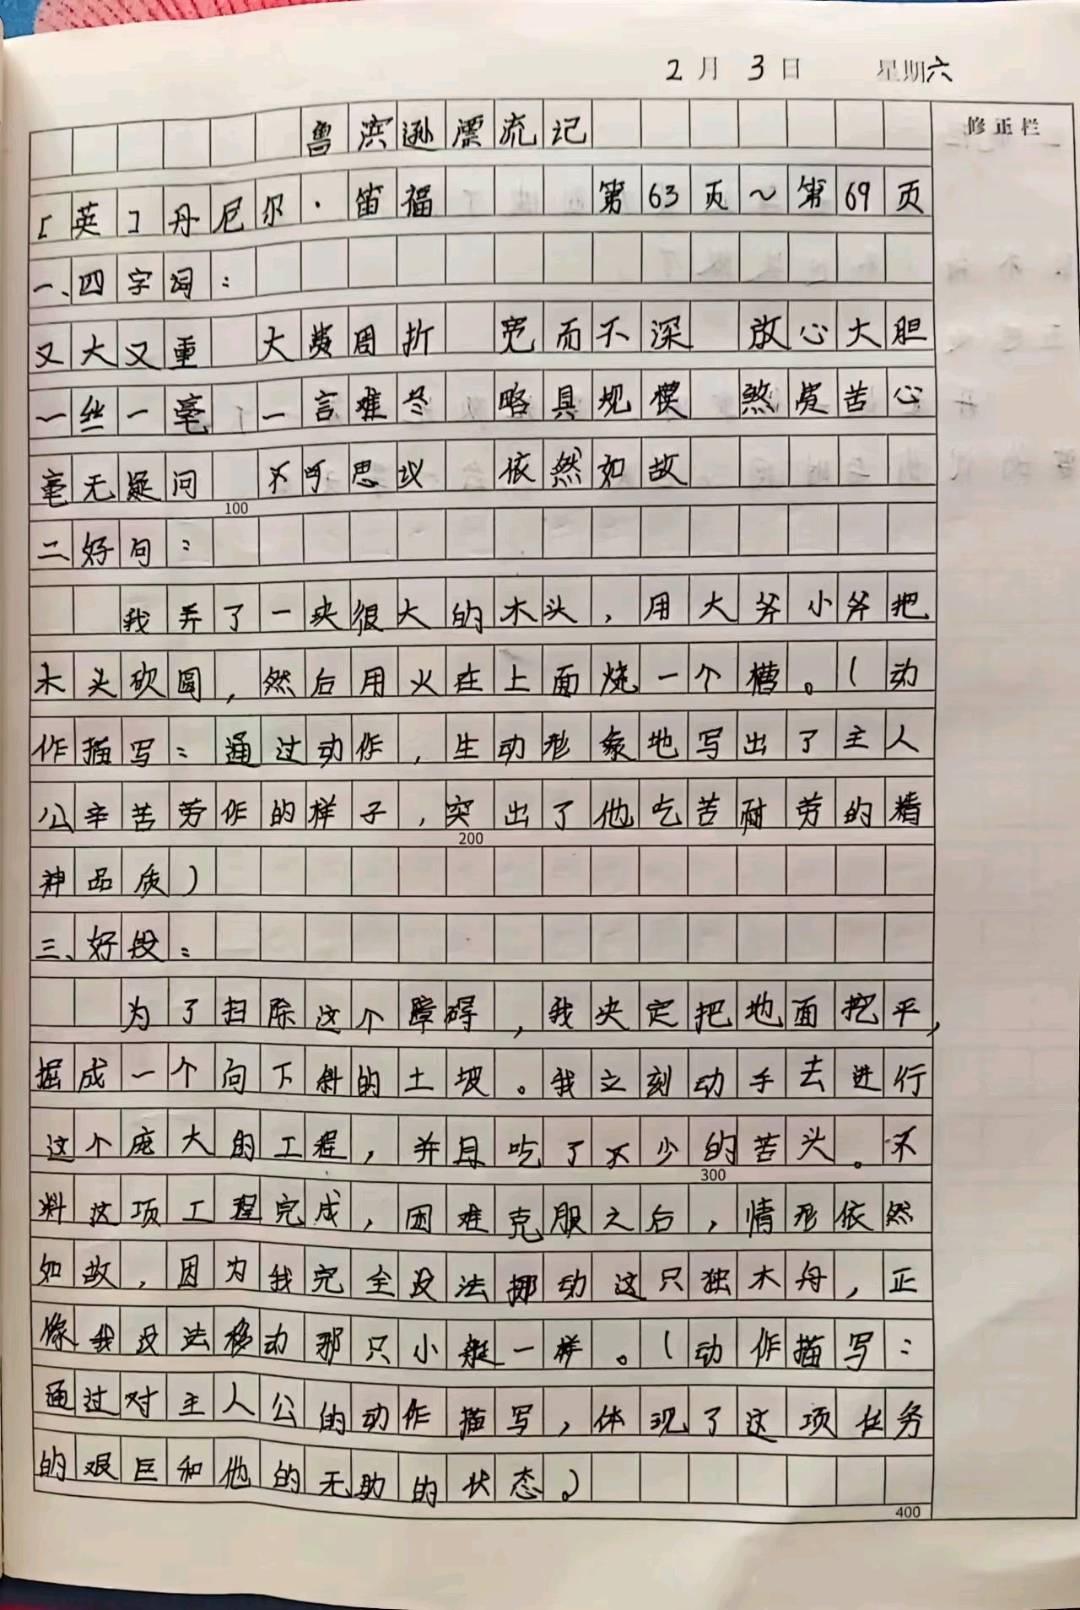 2月3日 星期六
修正栏
鲁滨逊漂流记
[英]丹尼尔·笛福 第63页～第69页
一、四字词：
又大又重 大费周折 宽而不深 放心大胆
一丝一毫 一言难尽 略具规模 煞费苦心
毫无疑问 不可思议 依然如故
100
二好句：
我弄了一块很大的木头，用大斧小斧把
木头砍圆，然后用火在上面烧一个槽。(动
作描写：通过动作，生动形象地写出了主人
公辛苦劳作的样子，突出了他吃苦耐劳的精
200
神品质)
三、好段：
为了扫除这个障碍，我决定把地面挖平，
掘成一个向下斜的土坡。我立刻动手去进行
这个庞大的工程，并且吃了不少的苦头。不
300
料这项工程完成，困难克服之后，情形依然
如故，因为我完全没法挪动这只独木舟，正
像我没法移动那只小艇一样。(动作描写：
通过对主人公的动作描写，体现了这项任务
的艰巨和他的无助的状态。)
400